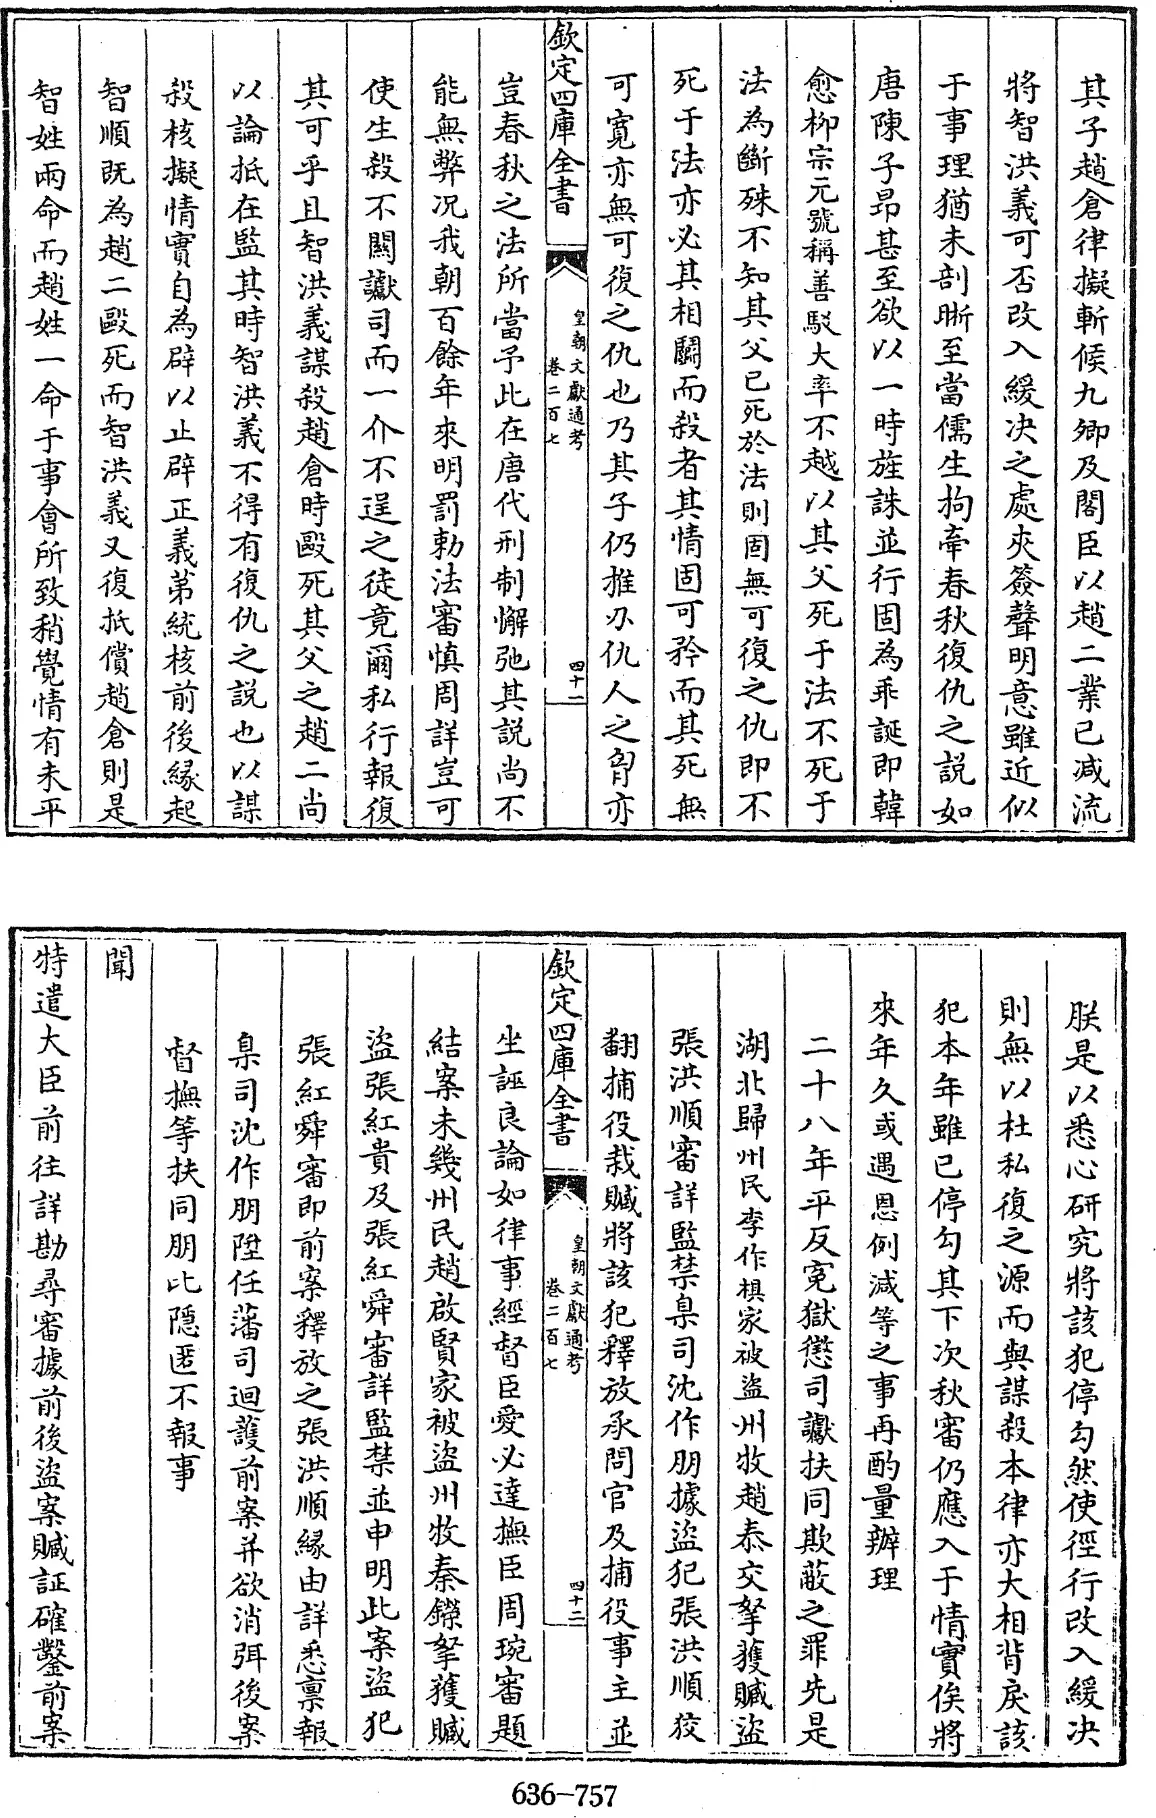 其子趙倉律擬斬候九卿及閣臣以趙二業已減流
將智洪義可否改入緩决之處夾簽聲明意雖近似
于事理猶未剖晰至當儒生拘牽春秋復仇之説如
唐陳子昂甚至欲以一時旌誅並行固為乖誕即韓
愈柳宗元號稱善駁大率不越以其父死于法不死于
法為斷殊不知其父已死於法則固無可復之仇即不
死于法亦必其相鬬而殺者其情固可矜而其死無
可寛亦無可復之仇也乃其子仍推刃仇人之胷亦
欽定四庫全書
皇朝文獻通考
卷二百七
四十一
豈春秋之法所當予此在唐代刑制懈弛其説尚不
能無弊况我朝百餘年來明罰勅法審慎周詳豈可
使生殺不關讞司而一介不逞之徒竟爾私行報復
其可乎且智洪義謀殺趙倉時毆死其父之趙二尚
以論抵在監其時智洪義不得有復仇之説也以謀
殺核擬情實自為辟以止辟正義第統核前後緣起
智順既為趙二毆死而智洪義又復抵償趙倉則是
智姓兩命而趙姓一命于事會所致稍覺情有未平
朕是以悉心研究將該犯停勾然使徑行改入緩决
則無以杜私復之源而與謀殺本律亦大相背戾該
犯本年雖已停勾其下次秋審仍應入于情實俟將
來年久或遇恩例減等之事再酌量辦理
二十八年平反寃獄懲司讞扶同欺蔽之罪先是
湖北歸州民李作棋家被盜州牧趙泰交拏獲贓盜
張洪順審詳監禁臬司沈作朋據盜犯張洪順狡
翻捕役栽贓將該犯釋放承問官及捕役事主並
欽定四庫全書
皇朝文獻通考
卷二百七
四十二
坐誣良論如律事經督臣愛必達撫臣周琬審題
結案未幾州民趙啟賢家被盜州牧秦鑅拏獲贓
盜張紅貴及張紅舜審詳監禁並申明此案盜犯
張紅舜審即前案釋放之張洪順緣由詳悉禀報
臬司沈作朋陞任藩司迴護前案并欲消弭後案
督撫等扶同朋比隱匿不報事
聞
特遣大臣前往詳勘尋審據前後盜案贓証確鑿前案
636-757